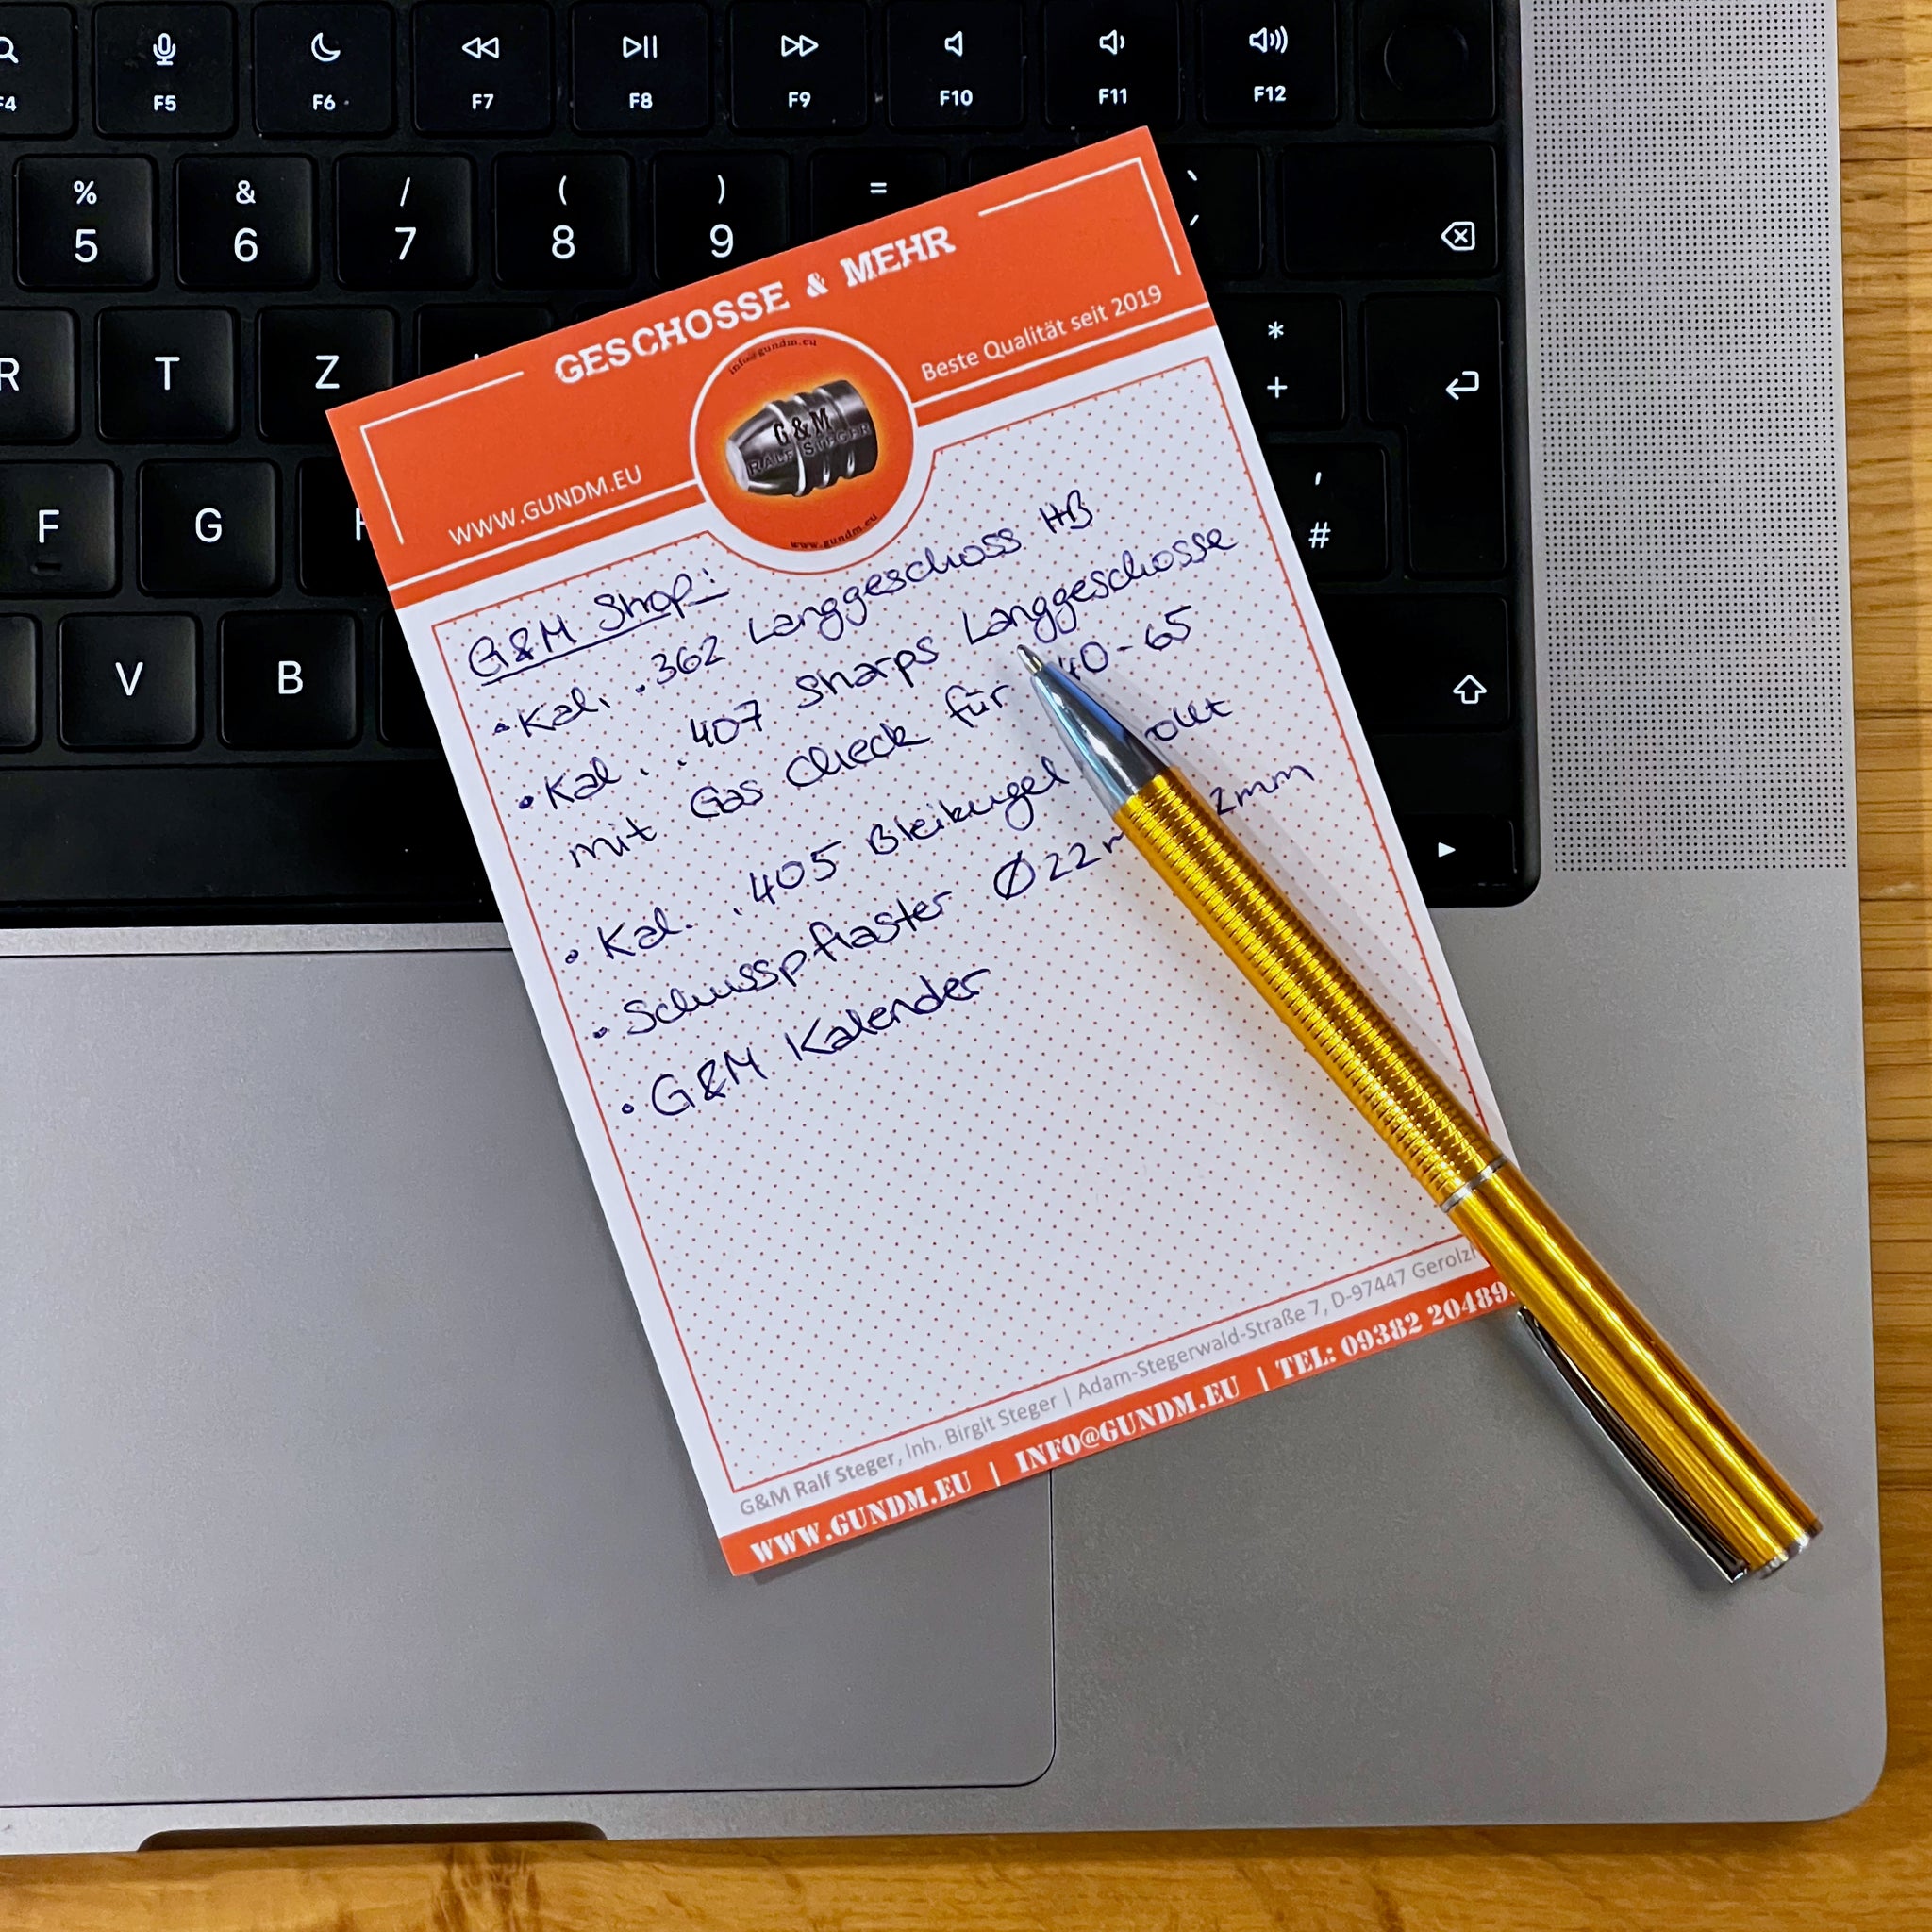 F4 F5 F6 F7 F8 F9 F10 F11 F12
% & / ( ) =
5 6 7 8 9
R T Z * +
F G ' #
V B
GESCHOSSE & MEHR
WWW.GUNDM.EU
Beste Qualität seit 2019
info@gundm.eu
G&M
RALF STEGER
www.gundm.eu
G&M Shop:
• Kal. .362 Langgeschoss HB
• Kal. .407 Sharps Langgeschosse
mit Gas Check für 40-65
• Kal. .405 Bleikugel
• Schusspflaster Ø 22 2mm
• G&M Kalender
G&M Ralf Steger, Inh. Birgit Steger | Adam-Stegerwald-Straße 7, D-97447
WWW.GUNDM.EU | INFO@GUNDM.EU | TEL: 09382 20489